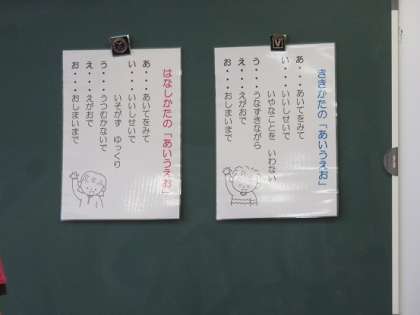 ききかたの「あいうえお」
あ・・・あいてをみて
い・・・いいしせいで
いやなことを いわない
う・・・うなずきながら
え・・・えがおで
お・・・おしまいまで
はなしかたの「あいうえお」
あ・・・あいてをみて
い・・・いいしせいで
いそがず ゆっくり
う・・・うつむかないで
え・・・えがおで
お・・・おしまいまで